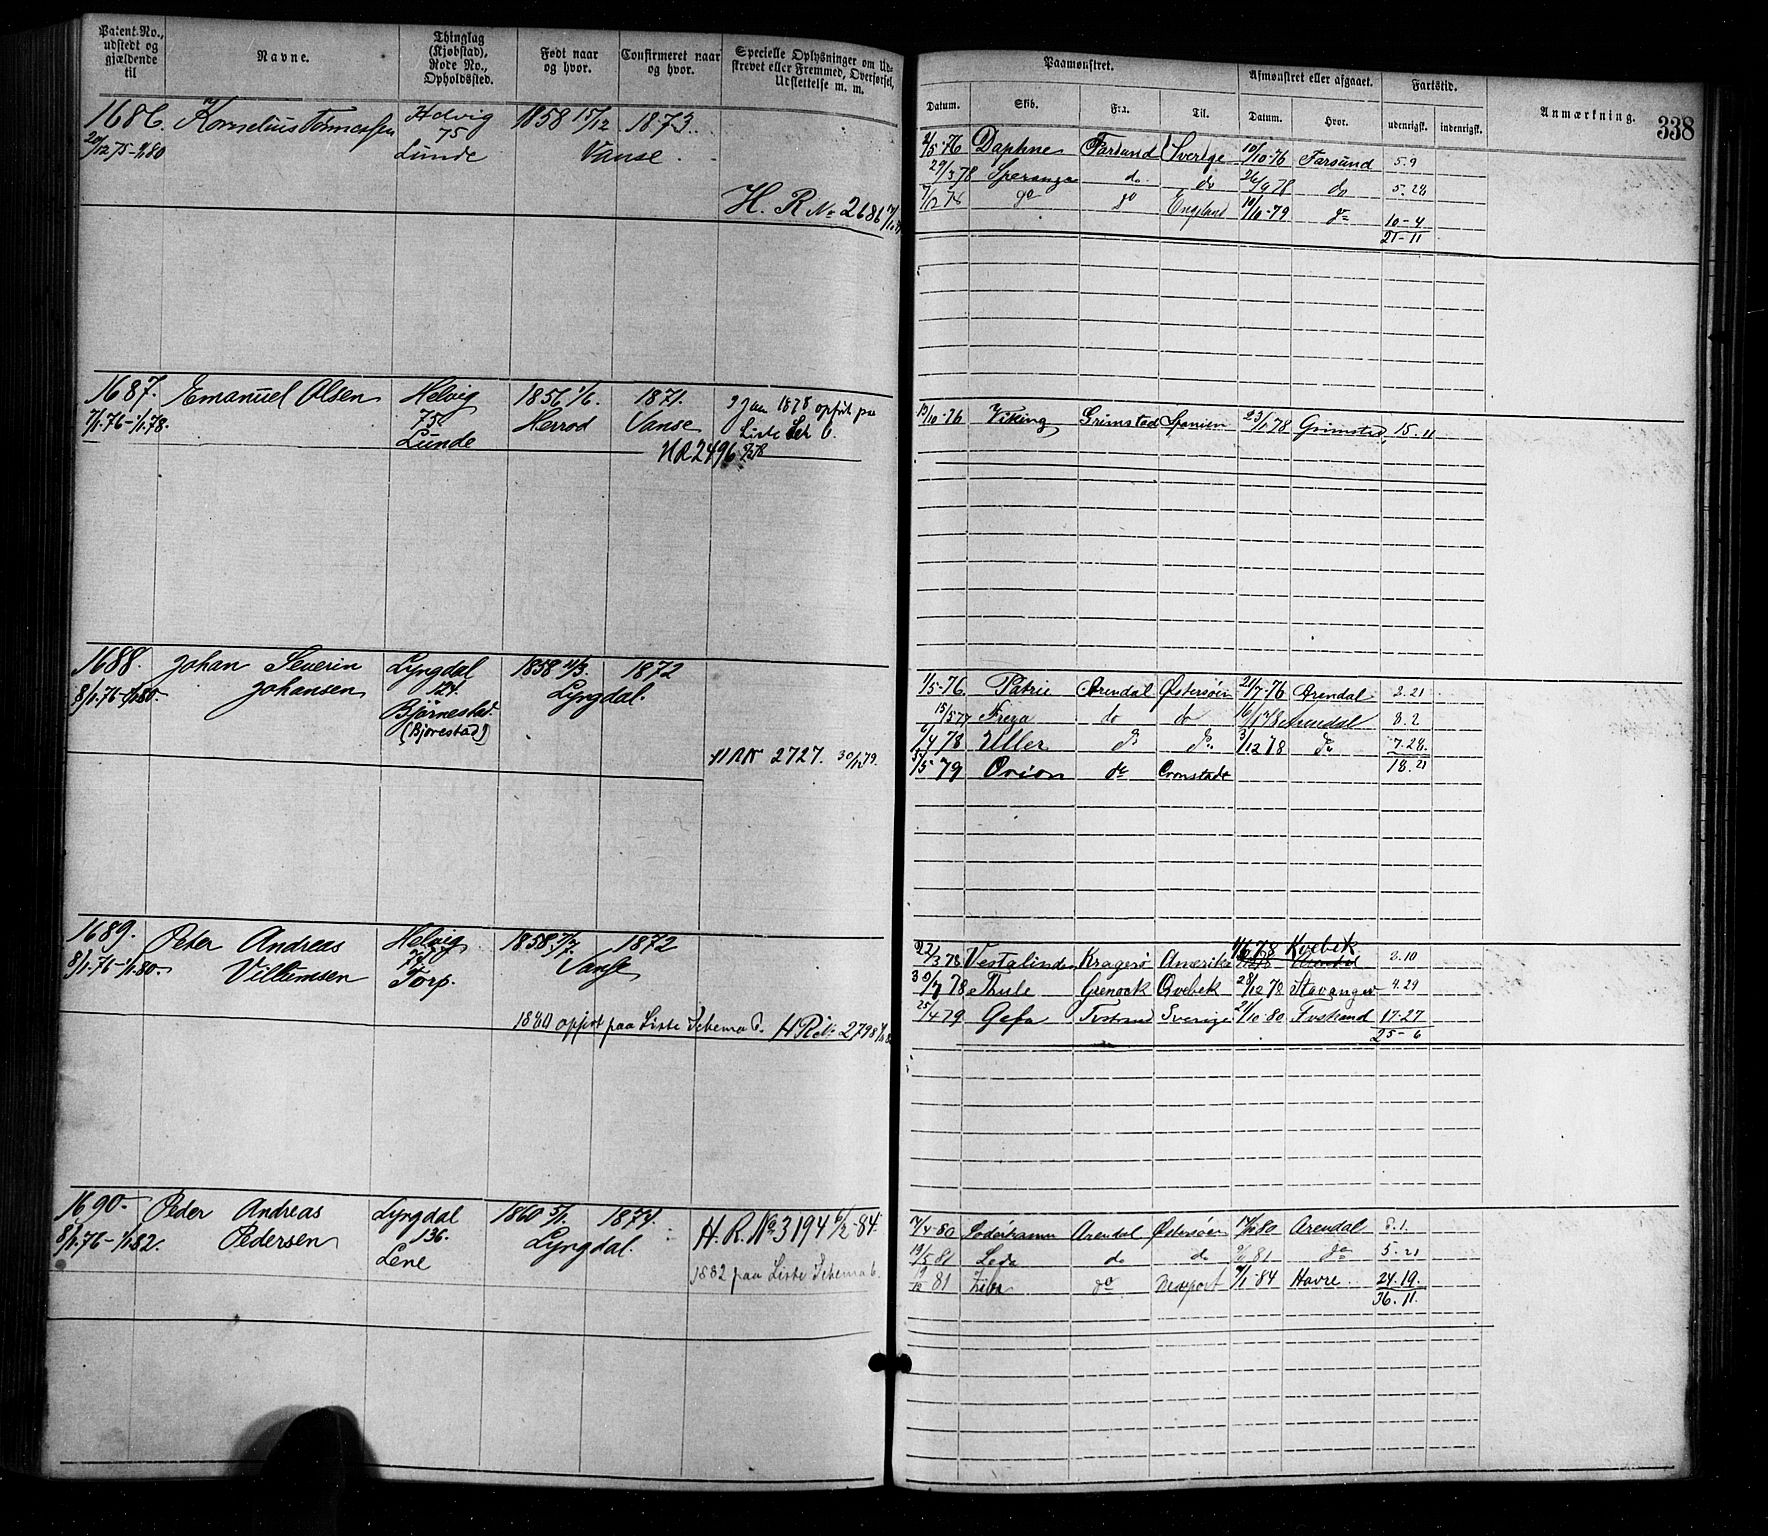 Patent.No., udstedt og gjældende til
Navne.
Thinglag (Kjøbstad), Rode No., Opholdssted.
Født naar og hvor.
Confirmeret naar og hvor.
Specielle Oplysninger om Udstrevet eller Fremmed, Overførsel, Udslettelse m. m.
Paamønstret.
Datum.
Skib.
Fra.
Til.
Afmønstret eller afgaaet.
Datum.
Hvor.
Fartstid.
udenrigsk.
indenrigsk.
Anmærkning.
338
1686. Kornelius Tønnessen Helvig 1858 15/12 1873.
75
Lunde Vanse.
H. R No 2686
2/5-76 Daphne Farsund Sverige 10/10-76 Farsund 5.9
29/3 78 Speranza do do 26/9 78 do 5.28
7/12 78 do do England 10/10-79 do 10-4
21-11
1687. Emanuel Olsen Helvig 1856 1/6. 1871.
7/1.76-1/1.78. 75 Herrod Vanse
Lunde
9 Jan 1878 opført paa
Liste
HR 2496
13/10-76 Viking Grimstad Spanien 23/1 78 Grimstad 15.11
1688. Johan Severin Lyngdal 1858 1872
Johansen 124. Lyngdal.
8/1.76-1/1.80-
Bjørnestad.
(Bjørestad)
2727. 30/1.79.
1/5-76 Patrie Arendal Østersøen 21/7-76 Arendal 2.21
15/5 77 Freya do do Arendal 8.2
78 Uller do do 3/12 78 do 7.28
18.21
79 Orion do Cronstadt
1689. Peter Andreas Helvig 1858 7/7. 1872
8/1.76-1/1.80- Villumsen Vanse
Torp.
1880 opført paa Liste Schema 6. H R No 2798
22/3 78 Vestalinden Kragerø Amerika 78 Kvebek 2.10
30/7 78 Thule Grenock Qvebek 28/12 78 Stavanger 4.29
25/4 79 Gefa Sverige 21/10-80 17-27
25-6
1690- Peder Andreas Lyngdal 1860 5/1. 1874.
8/1.76-1/1.82. Pedersen 136. Lyngdal.
Lene
H. R. No 3194 6/2-84.
1882 paa Liste Schema 6.
7/4-80 Arendal Østersøen 80 Arendal 8.1.
19/5 81 Leda do do 81 do 5.21
9/12 81 do 84 Havre. 24.19.
36.11.